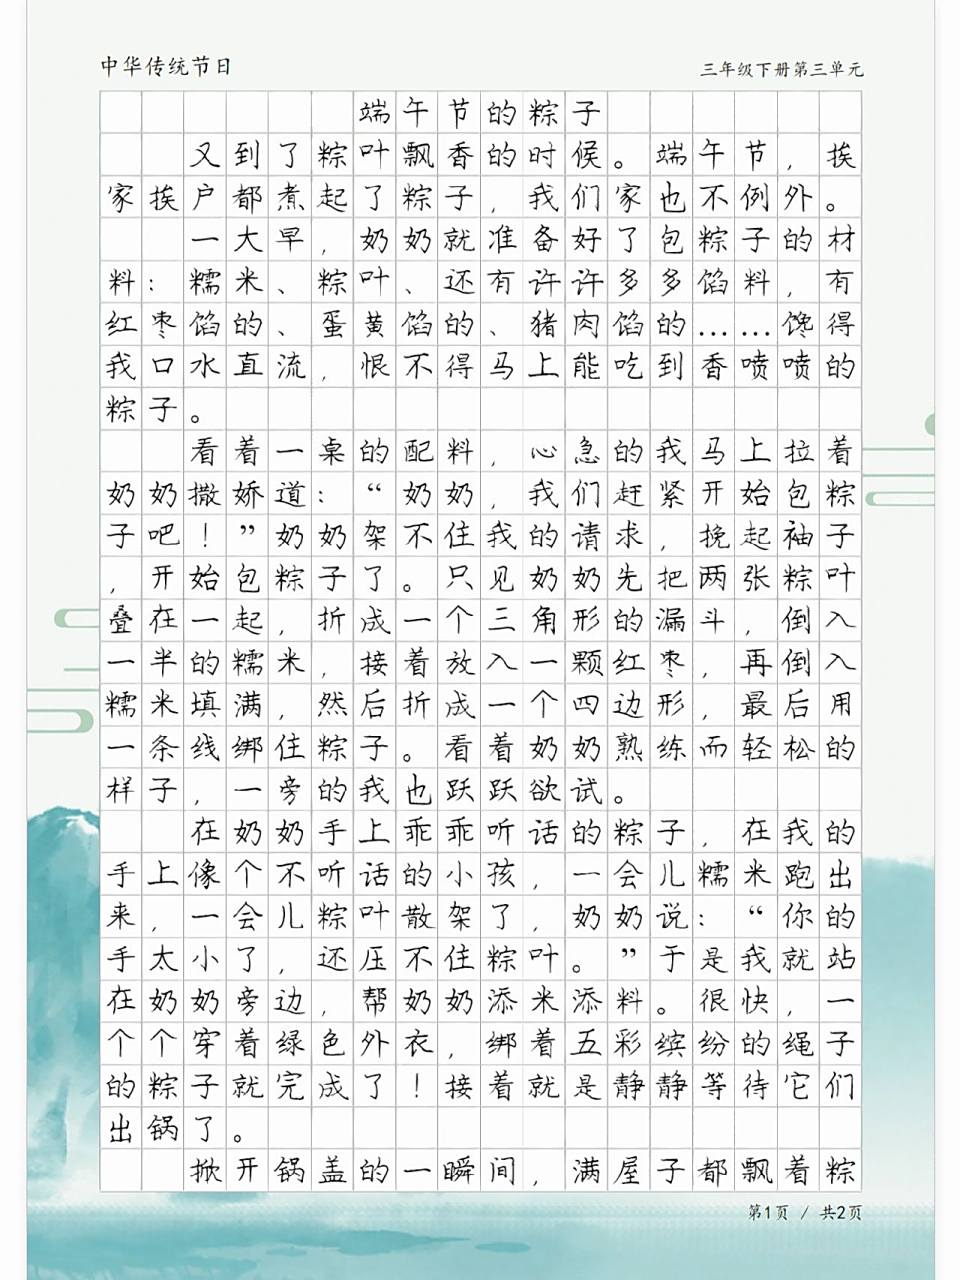 中华传统节日
三年级下册第三单元
端午节的粽子
又到了粽叶飘香的时候。端午节，挨
家挨户都煮起了粽子，我们家也不例外。
一大早，奶奶就准备好了包粽子的材
料：糯米、粽叶、还有许许多多馅料，有
红枣馅的、蛋黄馅的、猪肉馅的……馋得
我口水直流，恨不得马上能吃到香喷喷的
粽子。
看着一桌的配料，心急的我马上拉着
奶奶撒娇道：“奶奶，我们赶紧开始包粽
子吧！”奶奶架不住我的请求，挽起袖子
，开始包粽子了。只见奶奶先把两张粽叶
叠在一起，折成一个三角形的漏斗，倒入
一半的糯米，接着放入一颗红枣，再倒入
糯米填满，然后折成一个四边形，最后用
一条线绑住粽子。看着奶奶熟练而轻松的
样子，一旁的我也跃跃欲试。
在奶奶手上乖乖听话的粽子，在我的
手上像个不听话的小孩，一会儿糯米跑出
来，一会儿粽叶散架了，奶奶说：“你的
手太小了，还压不住粽叶。”于是我就站
在奶奶旁边，帮奶奶添米添料。很快，一
个个穿着绿色外衣，绑着五彩缤纷的绳子
的粽子就完成了！接着就是静静等待它们
出锅了。
掀开锅盖的一瞬间，满屋子都飘着粽
第1页 / 共2页